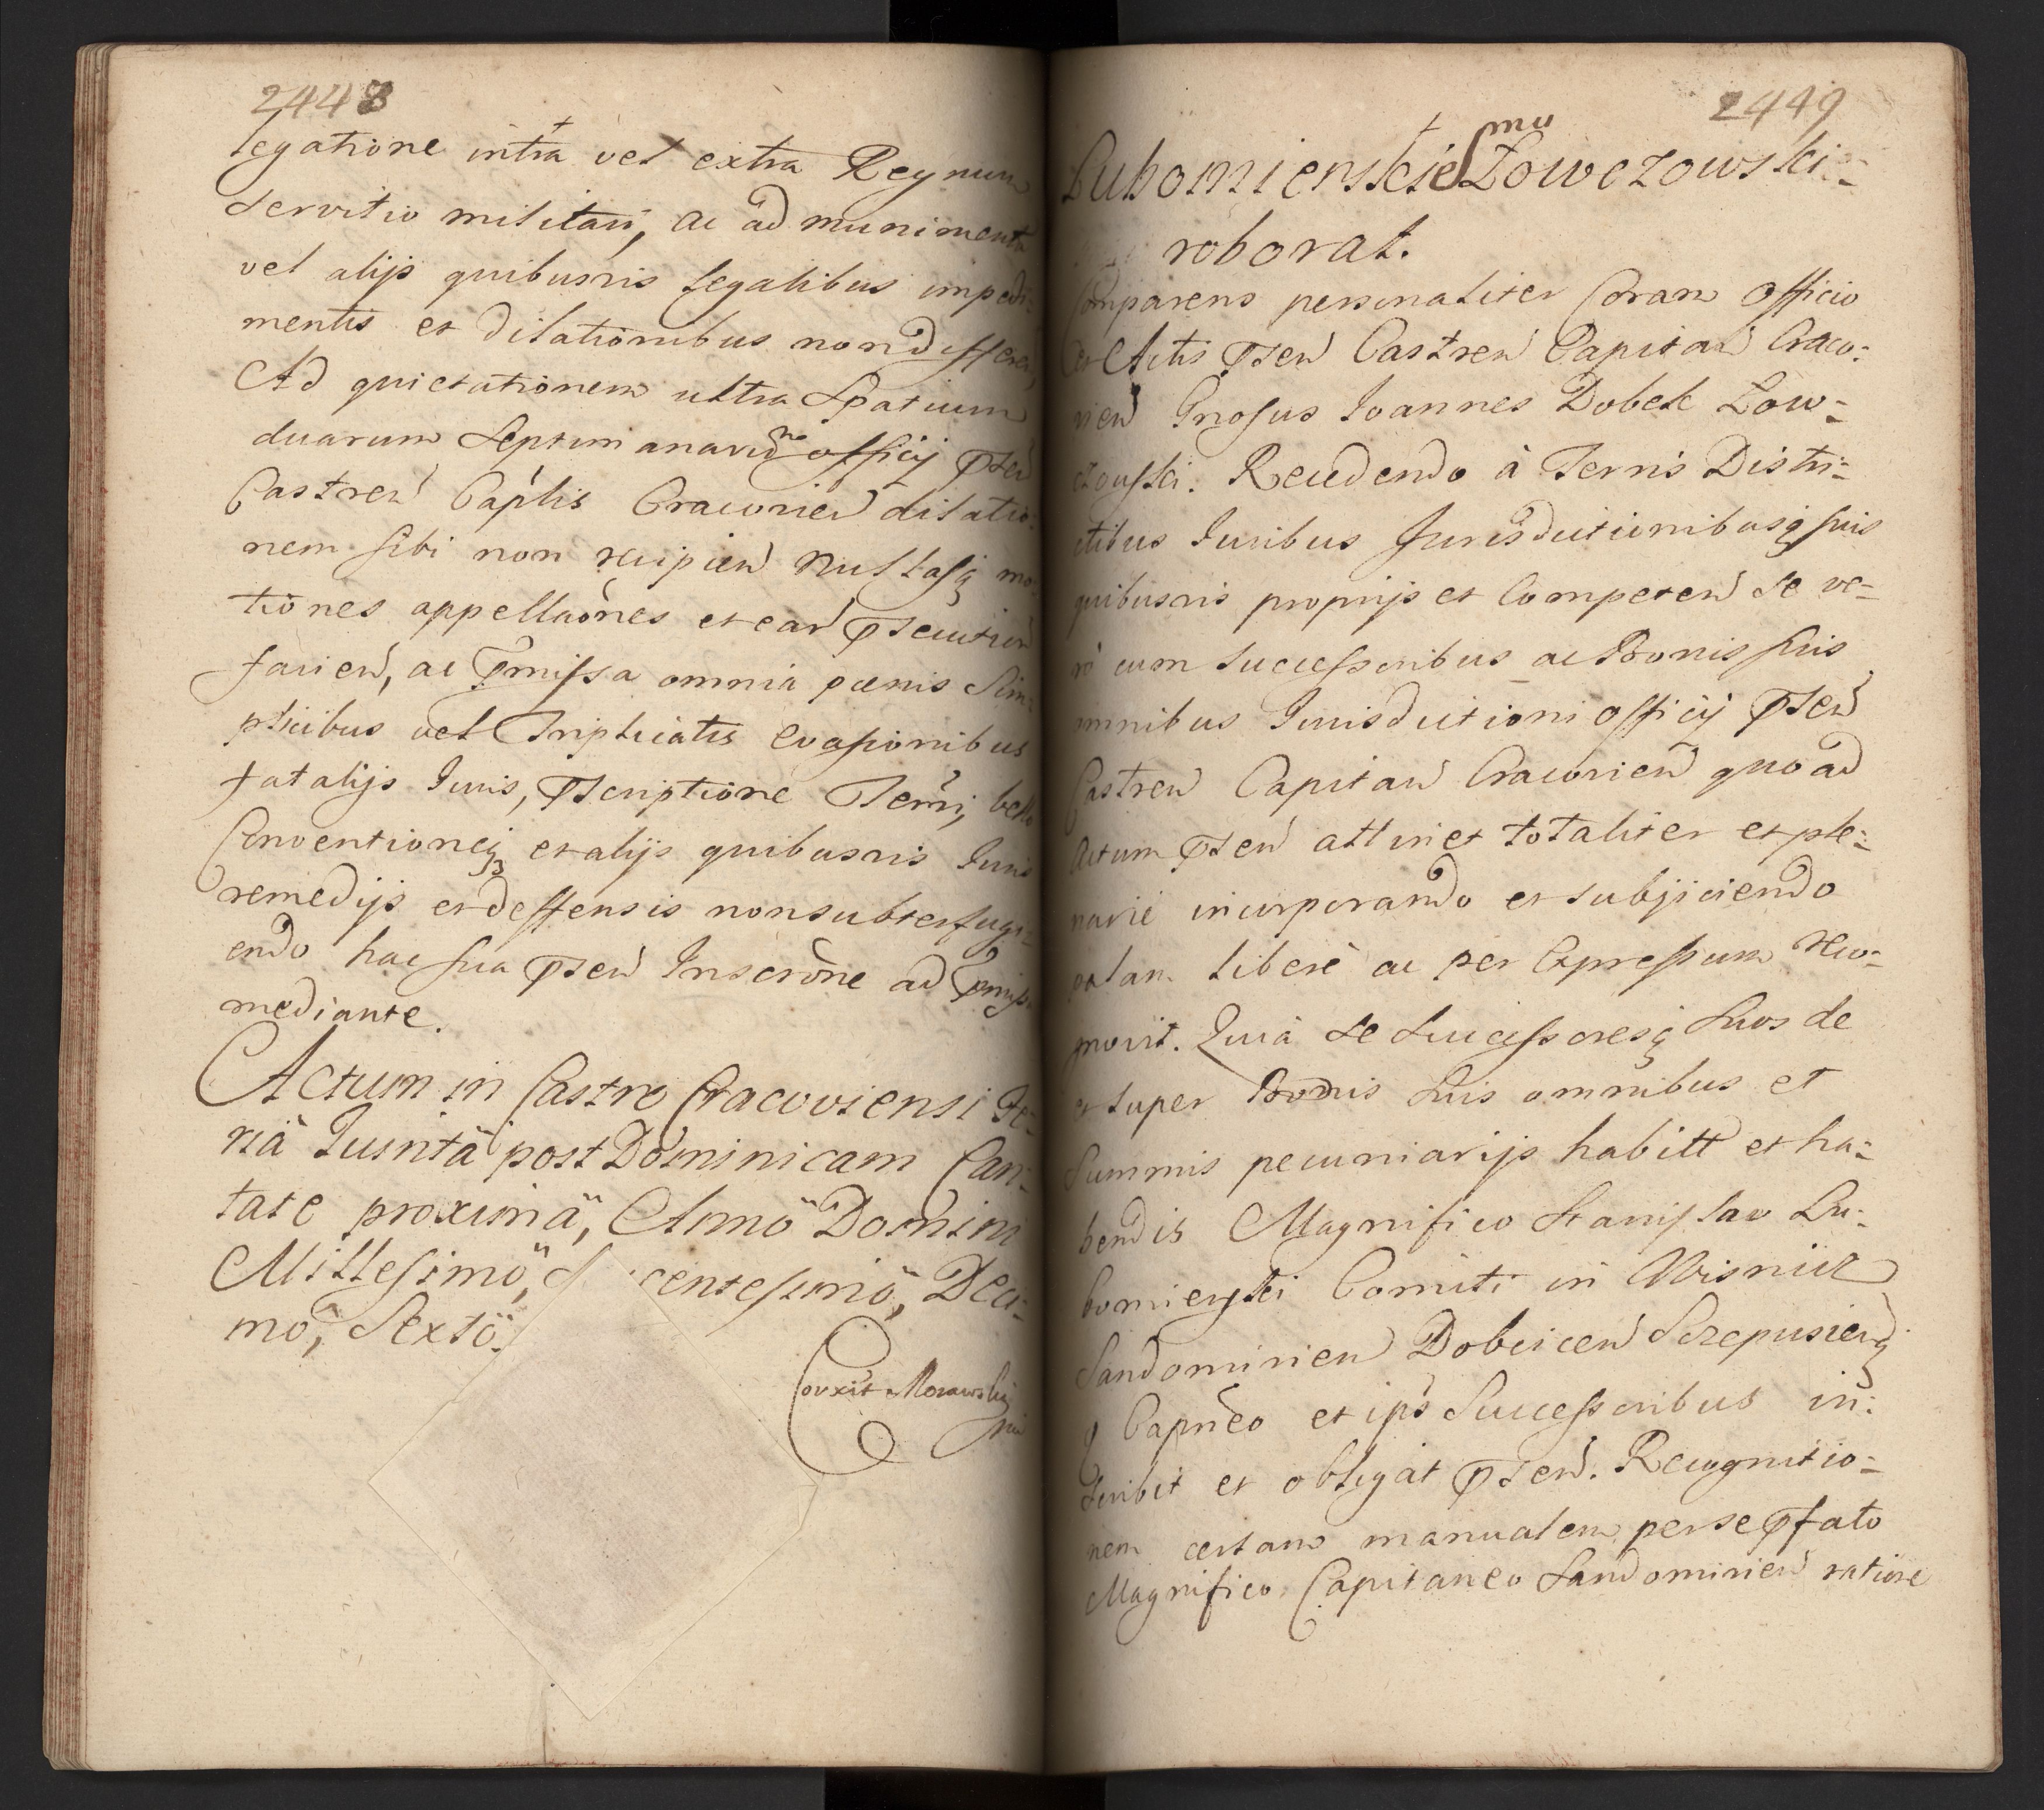 2448
legatione intra vel extra Regnum
servitio militari, ac ad munimenta
vel alijs quibusvis legalibus impedi-
mentis et dilationibus non differen,
Ad quietationem ultra Spatium
duarum Septimanarũ officij pten
Castren Capłis Cracovien dilatio-
nem sibi non recipien nullasq mo-
tiones appellaões et ear psecution
facien, ac pmissa omnia pœnis Sim-
plicibus vel Triplicatis evasionibus
fatalijs Iuris, pscriptione Terrj, bello
Conventioneq et alijs quibusvis Iuris
remedijs et deffensis non subterfugi-
endo hac sua pten Inscrõne ad pmissa
mediante.
Actum in Castro Cracoviensi Fe-
riã Quintã post Dominicam Can-
tate proximä, Annö Domini
Millesimö, centesimö, Deci-
mö, Sextö.
Corrxit Morawski
mp
2449
Lubomierskie Smu Łowczowski
roborat.
Comparens personaliter Coram Officio
et Actis pten Castren Capitan Craco-
vien Gnosus Ioannes Dobek Łow-
czouski. Recedendo à Terris Distri-
ctibus Iuribus Iurisdictionibusq suis
quibusvis proprijs et Competen se ve-
rò cum successoribus ac Bonis suis
omnibus Iurisdictioni officij pten
Castren Capitan Cracovien quo ad
Actum pten attinet totaliter et ple-
narie incorporando et subjiciendo
palam libere ac per Expressum reco-
gnovit. Quia se Successoresq Suos de
et super Bonis Suis omnibus et
Summis pecuniarijs habitt et ha-
bendis Magnifico Stanislao Lu-
bomierski Comiti in Wisnicz
Sandomirien Dobcicen Scepusienq
Capneo et ips Successoribus in-
scribit et obligat pten. Recognitio-
nem certam manualem per se pfato
Magnifico Capitaneo Sandomirien ratione